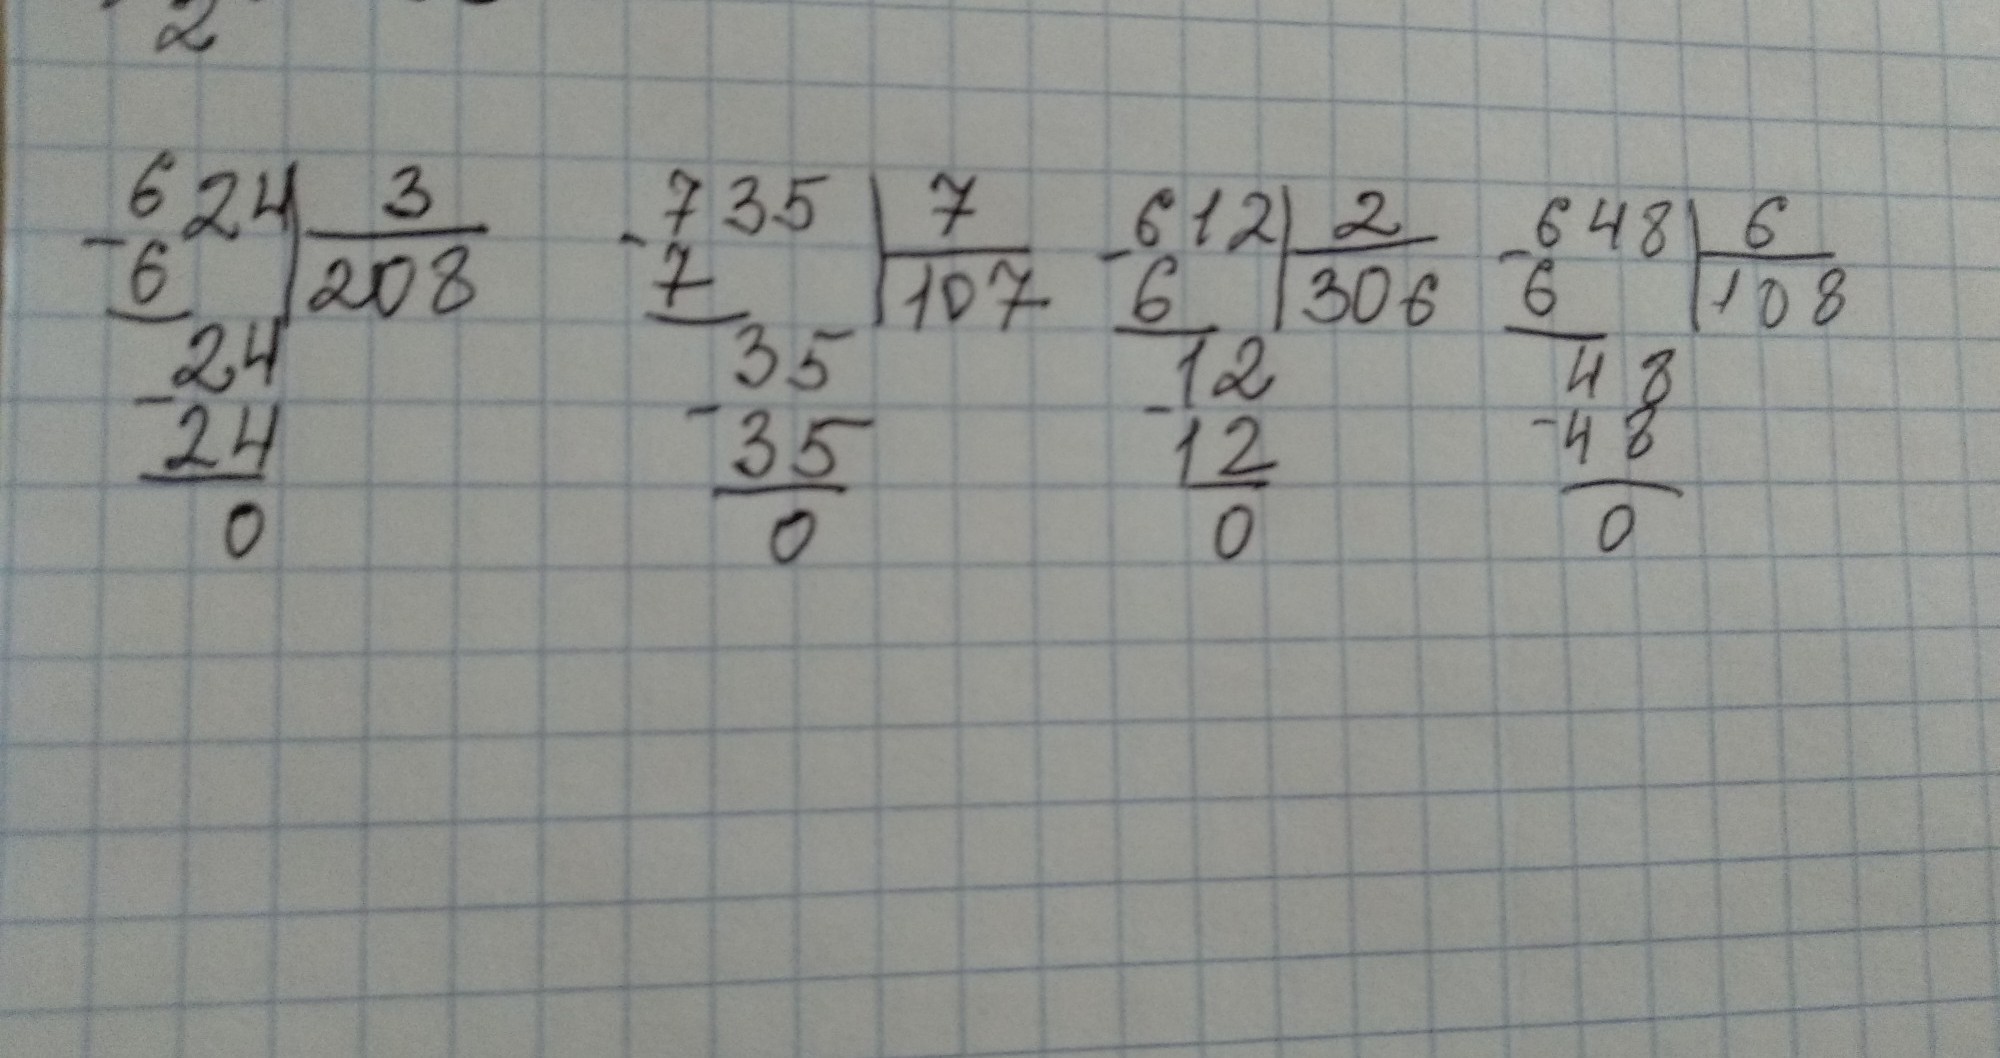 2
624 3 735 7 612 2 648 6
- 6 208 - 7 107 - 6 306 - 6 108
24 35 12 48
- 24 - 35 - 12 - 48
0 0 0 0